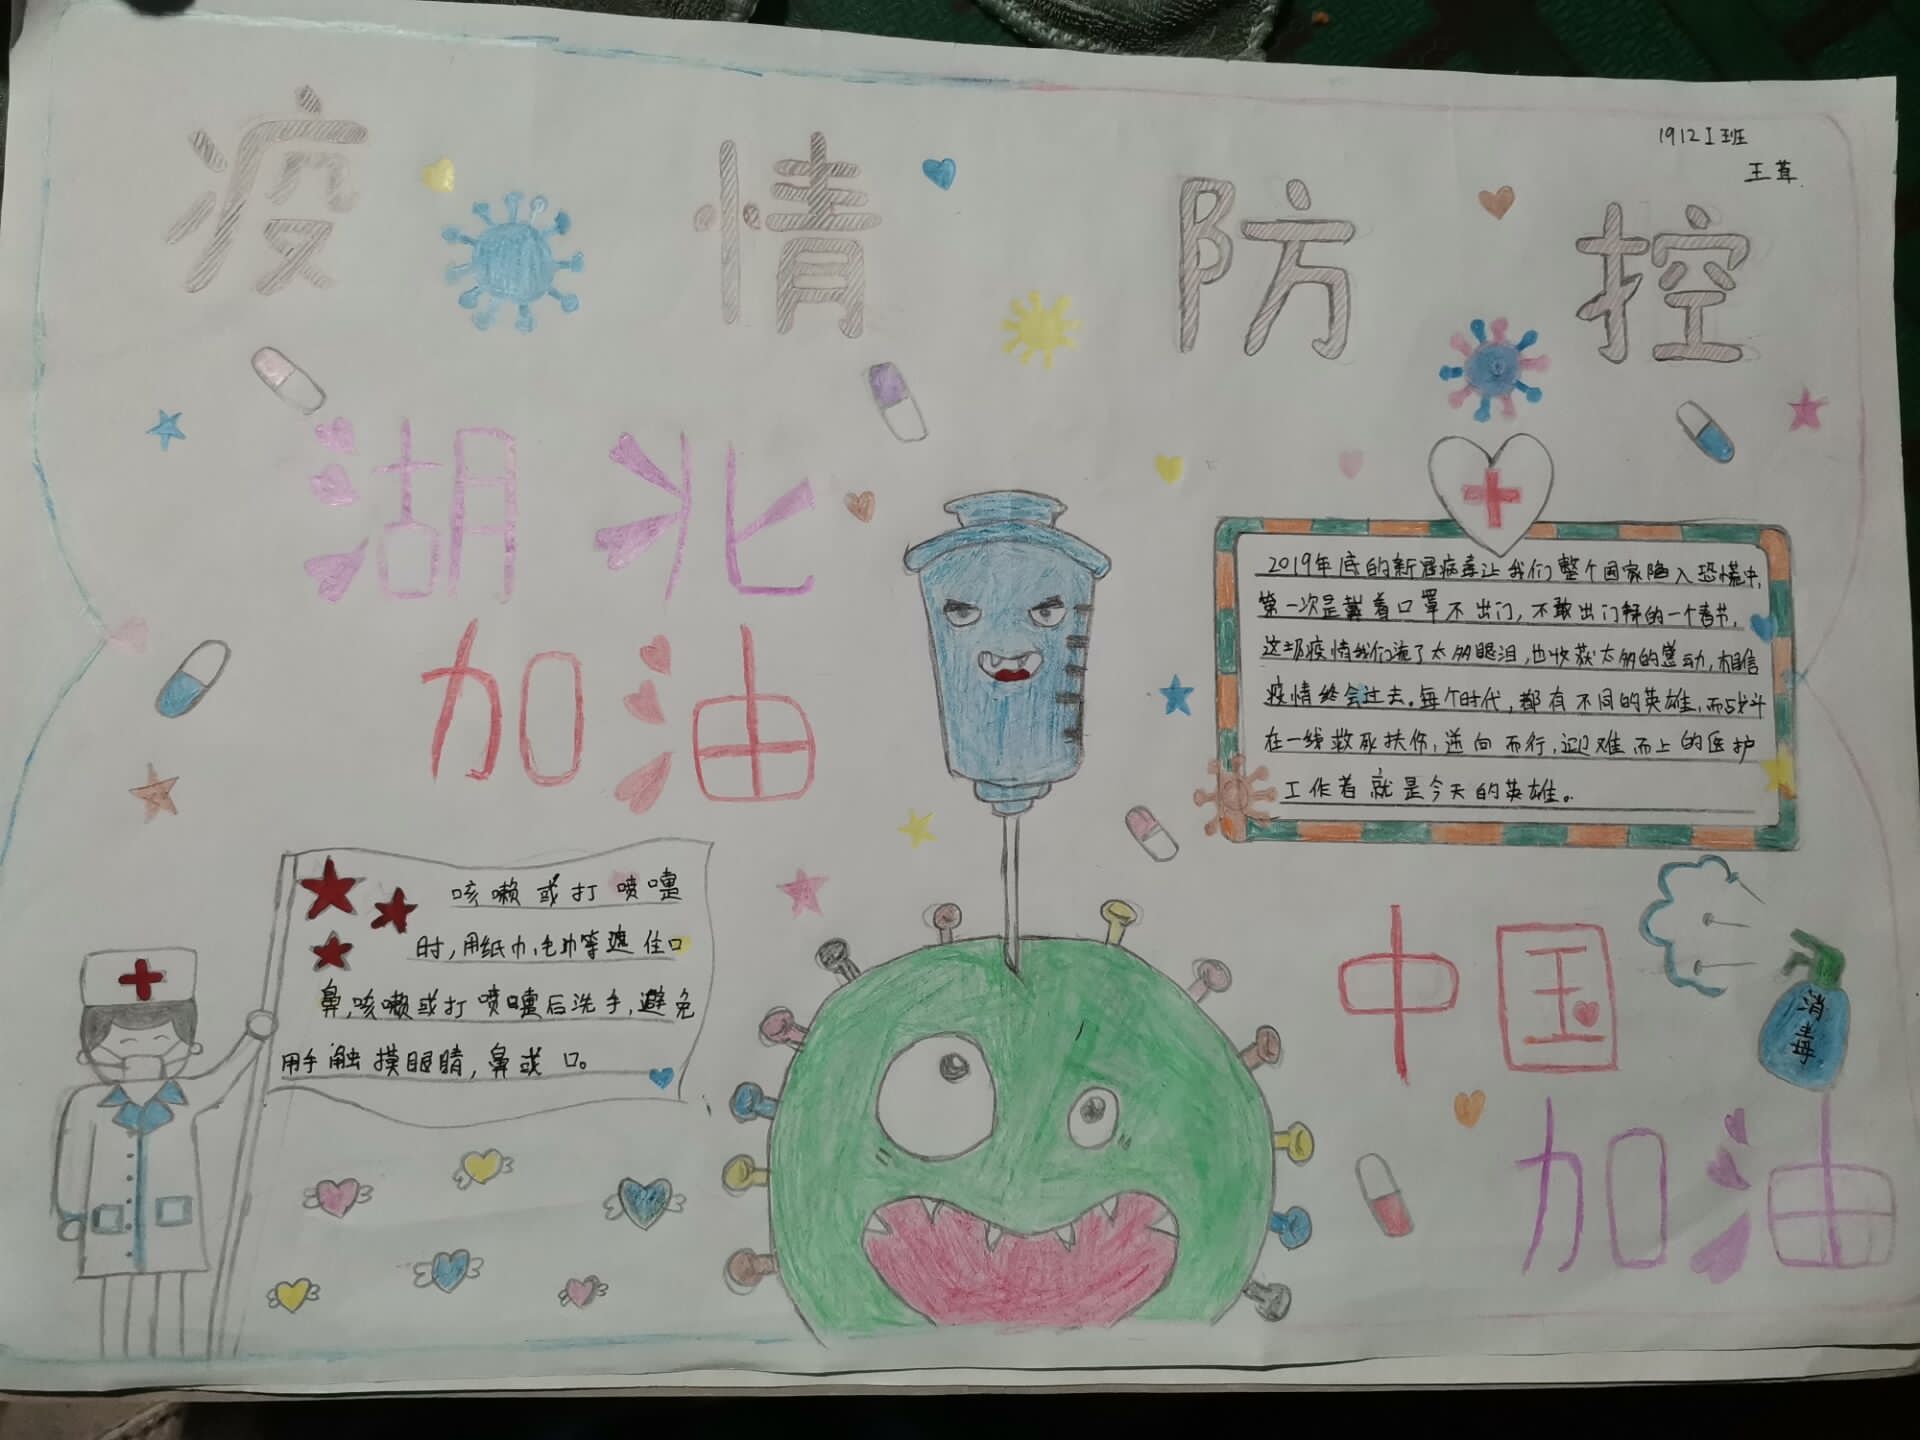 疫情防控
1912工班
王茸
湖北
加油
2019年底的新冠病毒让我们整个国家陷入恐慌中,
第一次是戴着口罩不出门,不敢出门拜的一个春节,
这场疫情我们流了太多眼泪,也收获太多的感动,相信
疫情终会过去。每个时代,都有不同的英雄,而战斗
在一线救死扶伤,逆向而行,迎难而上的医护
工作者就是今天的英雄。
咳嗽或打喷嚏
时,用纸巾、毛巾等遮住口
鼻,咳嗽或打喷嚏后洗手,避免
用手触摸眼睛,鼻或口。
中国
消毒
加油